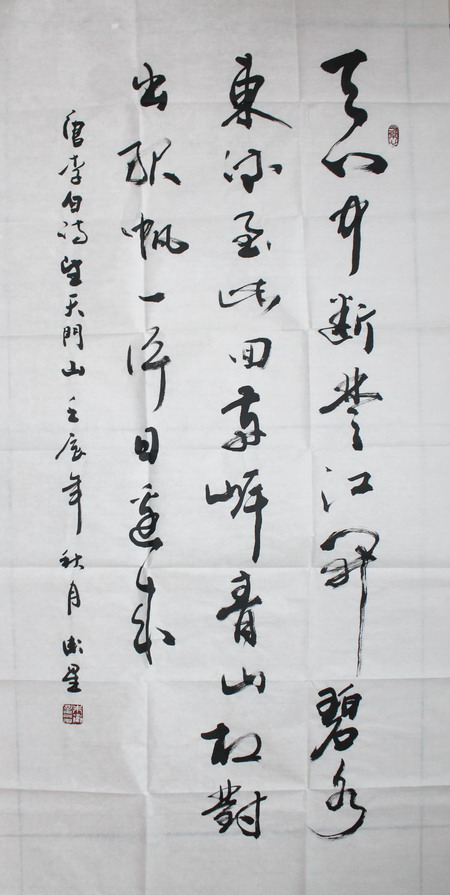 天门中断楚江開碧水
東流至此回両岸青山相對
出孤帆一片日邊来
唐李白诗望天門山壬辰年秋月